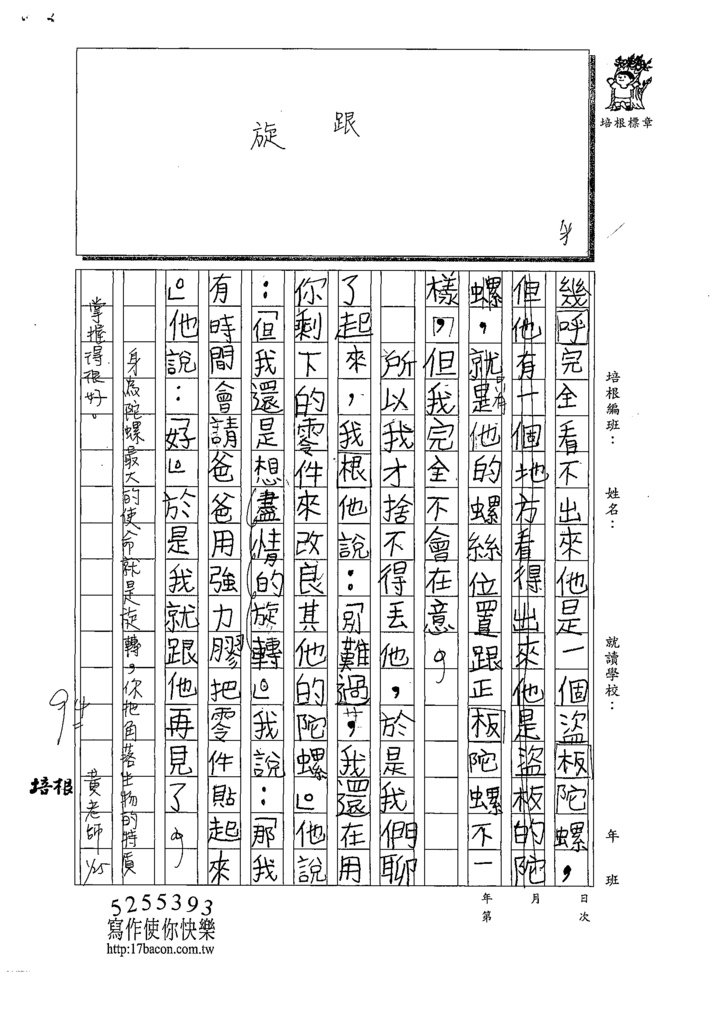 跟
旋
培根標章
培根編班：
姓名：
就讀學校：
年
班
日
次
月
年
第
幾呼完全看不出來他是一個盜板陀螺，
但他有一個地方看得出來他是盜板的陀
螺，就是他的螺絲位置跟正板陀螺不一
樣，但我完全不會在意。
所以我才捨不得丟他，於是我們聊
了起來，我根他說：「別難過，我還在用
你剩下的零件來改良其他的陀螺」他說
：「但我還是想盡情的旋轉」我說：「那我
有時間會請爸爸用強力膠把零件貼起來
。」他說：「好」於是我就跟他再見了。
身為陀螺最大的使命就是旋轉，你把角落生物的特質
掌握得很好。
94
黃老師 1/25
培根
5255393
寫作使你快樂
http:17bacon.com.tw